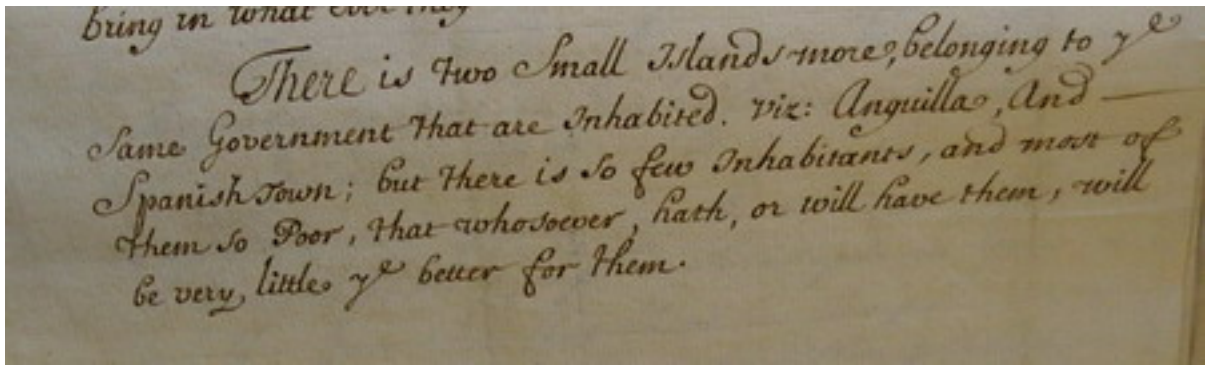 bring in what ever they
There is two Small Islands more, belonging to ye
Same Government that are Inhabited. viz: Anguilla, And
Spanish Town; but there is so few Inhabitants, and most of
them so Poor, that whosoever, hath, or will have them, will
be very, little ye better for them.